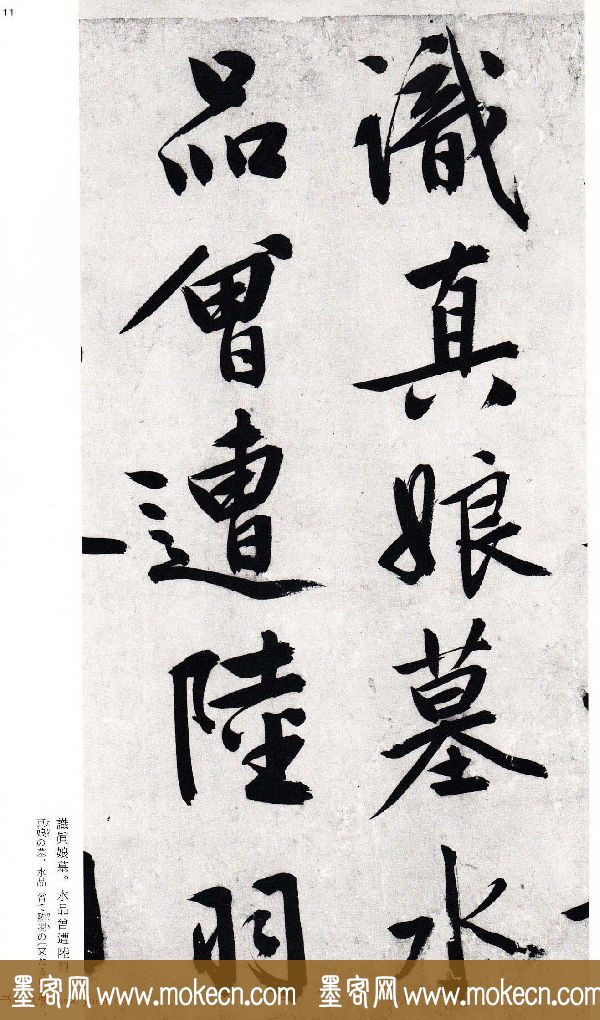 11
識真娘墓水
品曾遭陸羽
識眞娘墓。水品曾遭陸羽
真娘の墓、水品曾て陸羽の
墨客网 www.mokecn.com 墨客网 www.mokecn.com